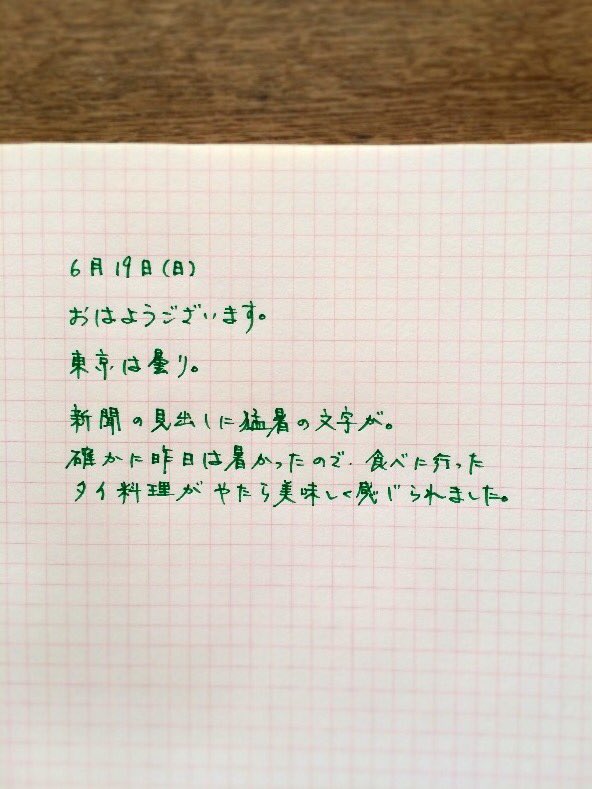 6月19日(日)
おはようございます。
東京は曇り。
新聞の見出しに猛暑の文字が。
確かに昨日は暑かったので、食べに行った
タイ料理がやたら美味しく感じられました。